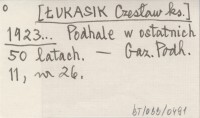 [ŁUKASIK Czesław ks.]
1923... Podhale w ostatnich
50 latach. — Gaz. Podh.
11, nr 26.